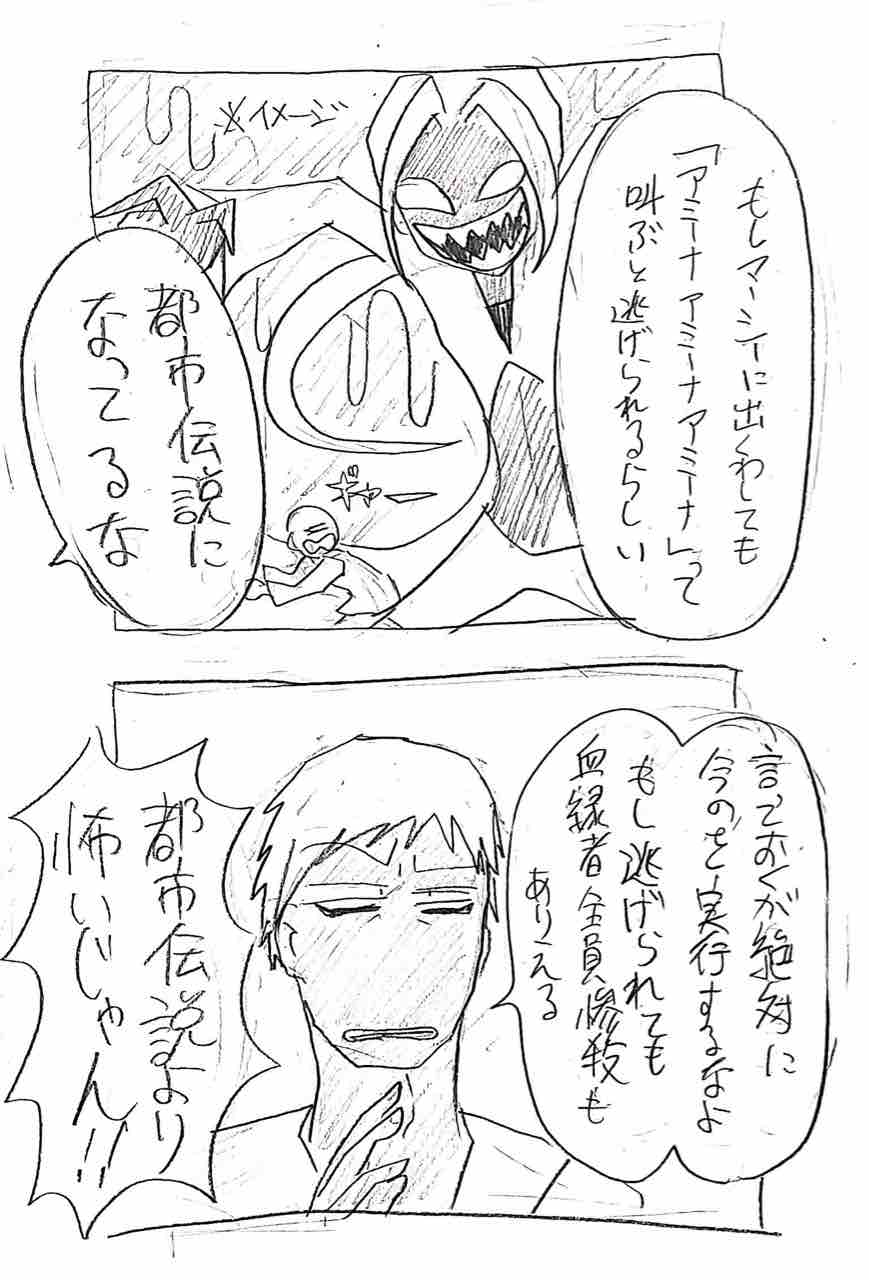 もしマーシーに出くわしても
「アミーナアミーナアミーナ」って
叫ぶと逃げられるらしい
※イメージ
都市伝説に
なってるな
ギャー
言っておくが絶対に
今のを実行するなよ
もし逃げられても
血縁者全員惨殺も
ありえる
都市伝説より
怖いじゃん!!